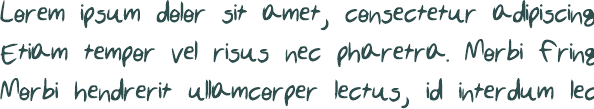 Lorem ipsum dolor sit amet, consectetur adipiscing
Etiam tempor vel risus nec pharetra. Morbi fring
Morbi hendrerit ullamcorper lectus, id interdum lec